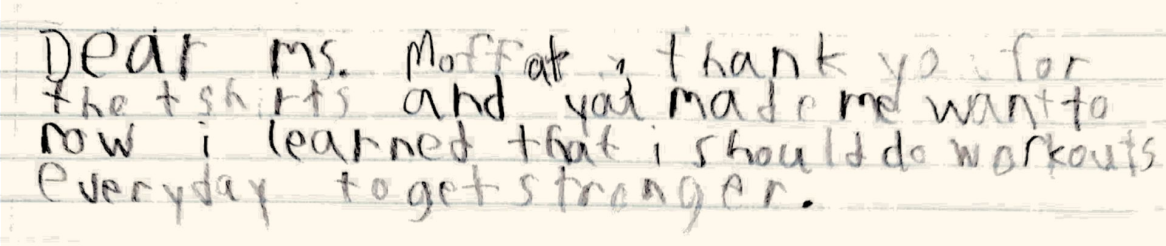 Dear ms. Moffat, thank yo for
the tshirts and you made me want to
row i learned that i should do workouts
everyday to get stronger.